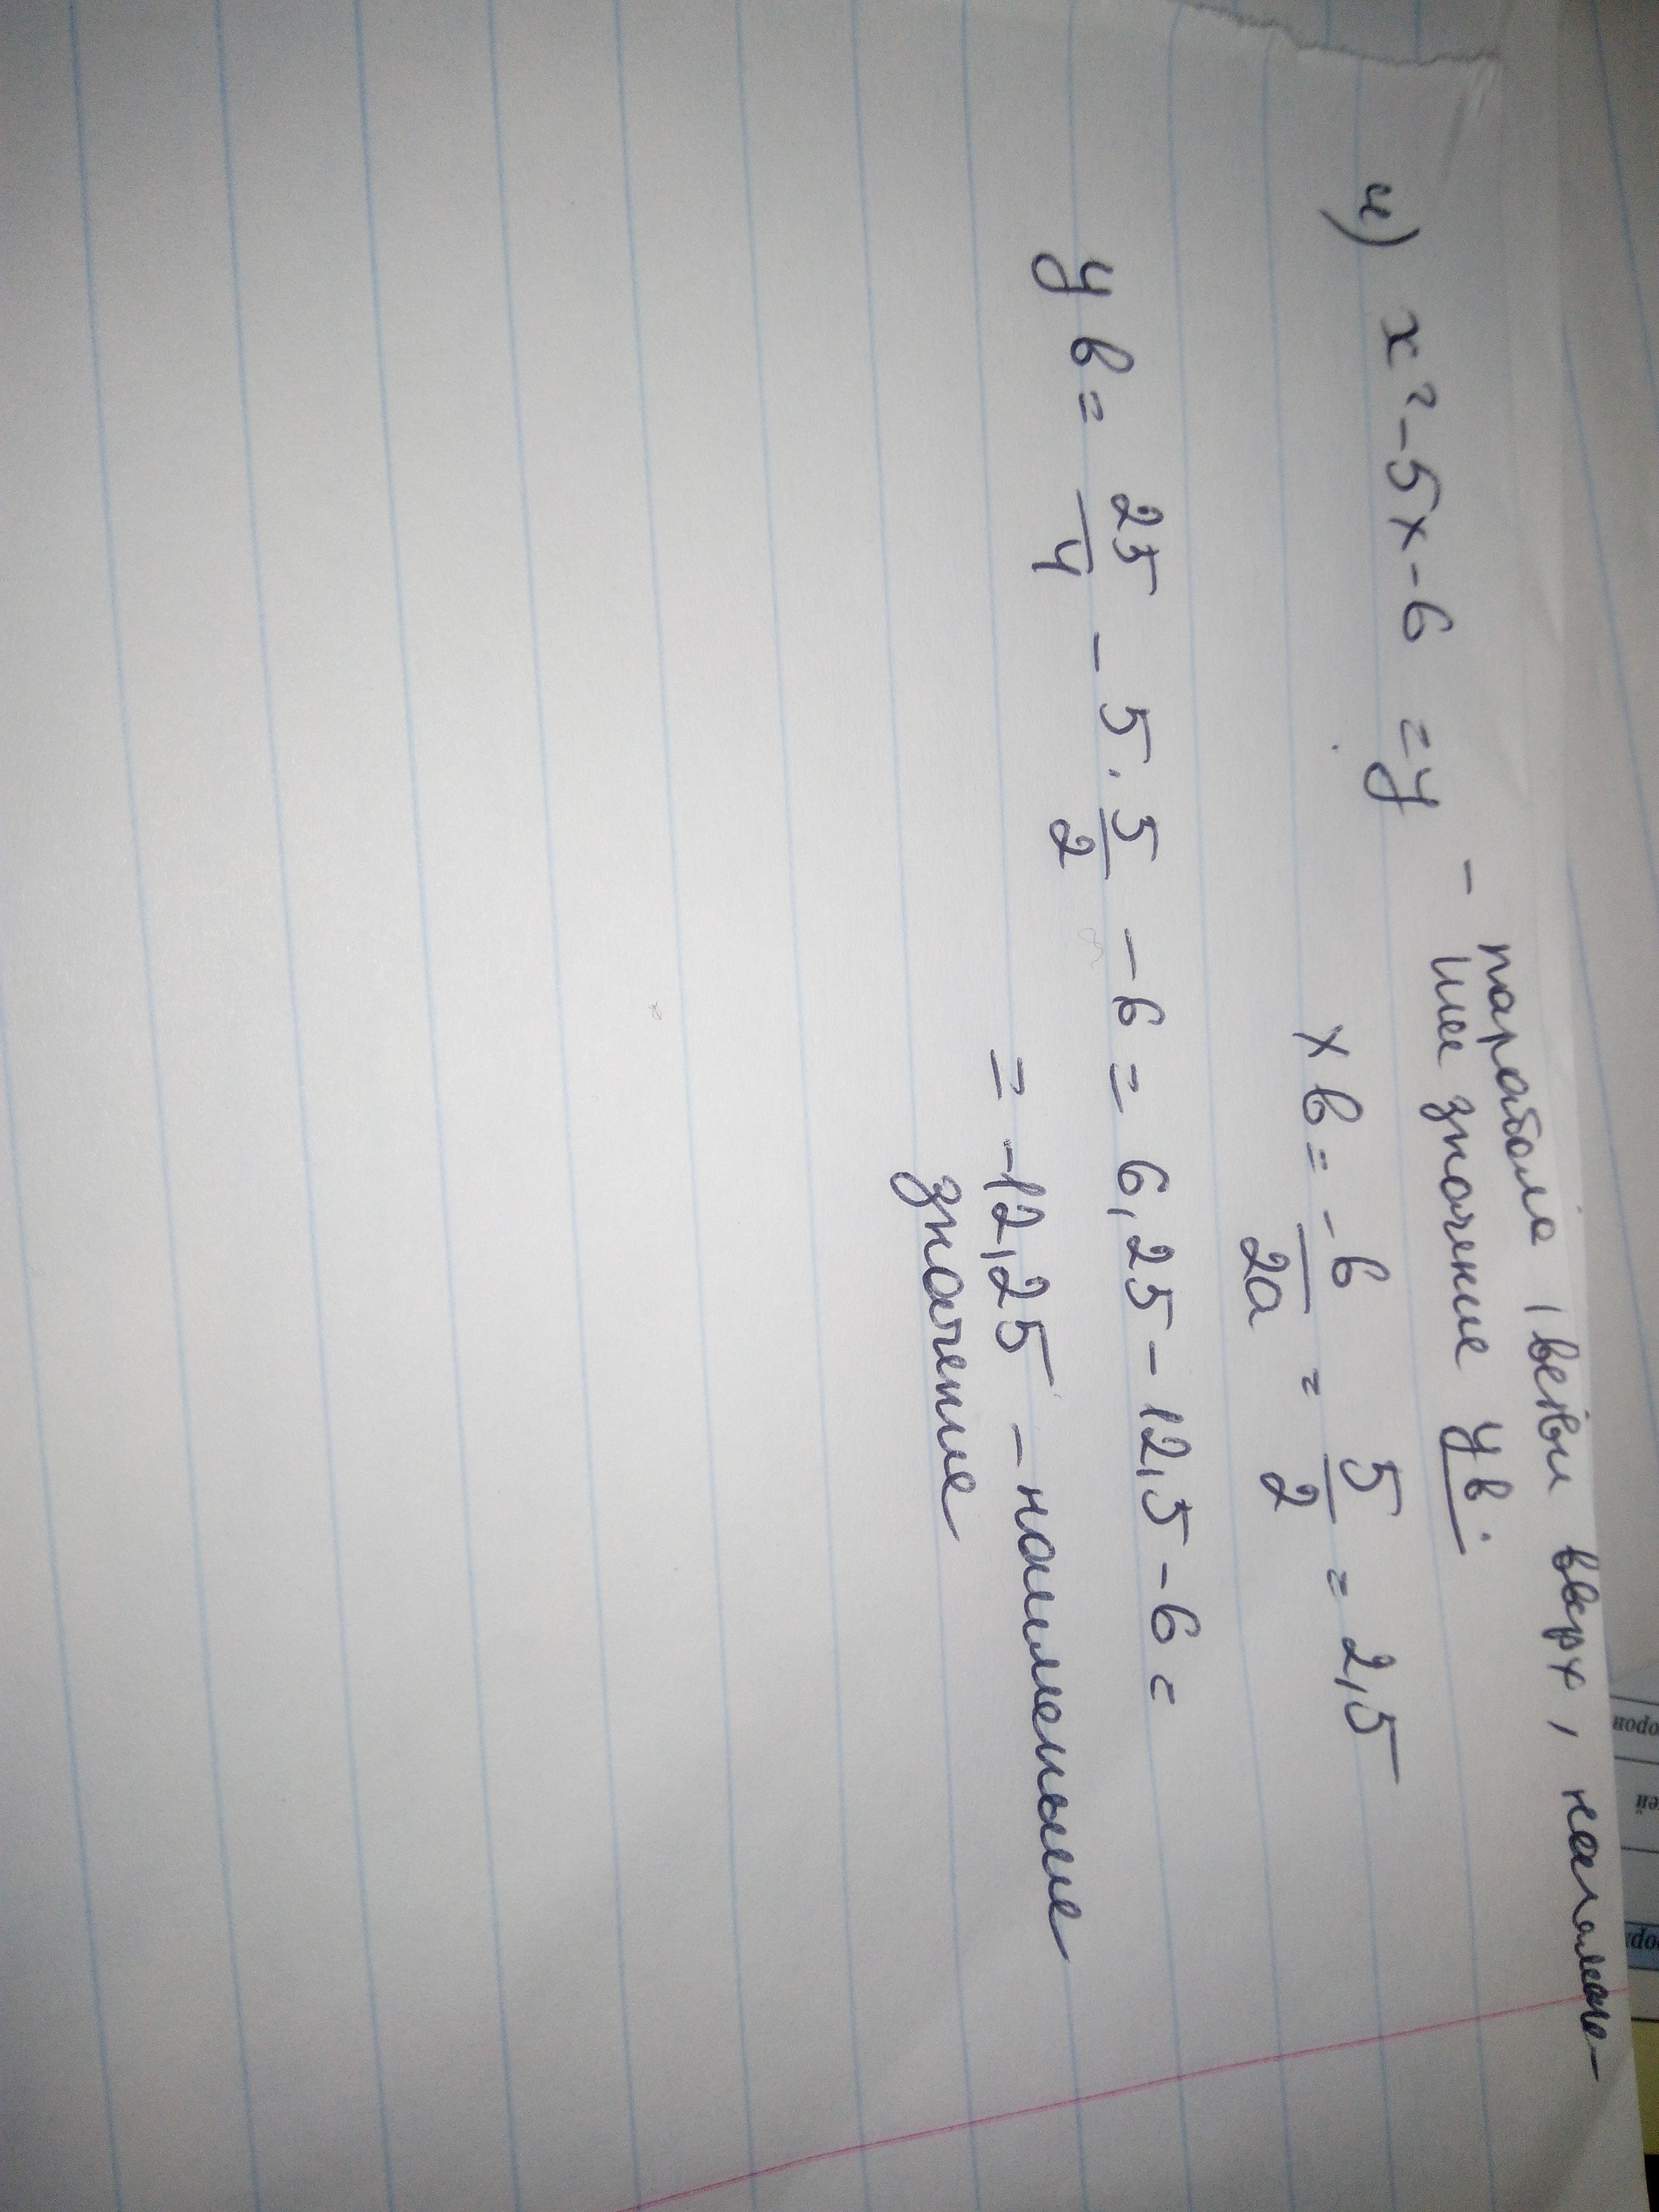 4) x² - 5x - 6 = y - парабола, ветви вверх, наимень-
шее значение yв.
xв = -b/2a = 5/2 = 2,5
yв = 25/4 - 5 · 5/2 - 6 = 6,25 - 12,5 - 6 =
= -12,25 - наименьшее
значение